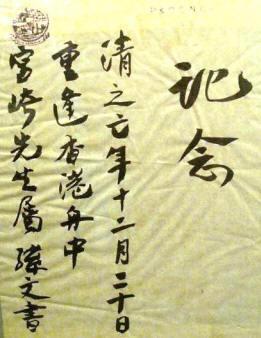 記念
清之亡年十二月二十日
重逢香港舟中
宮崎先生屬 孫文書